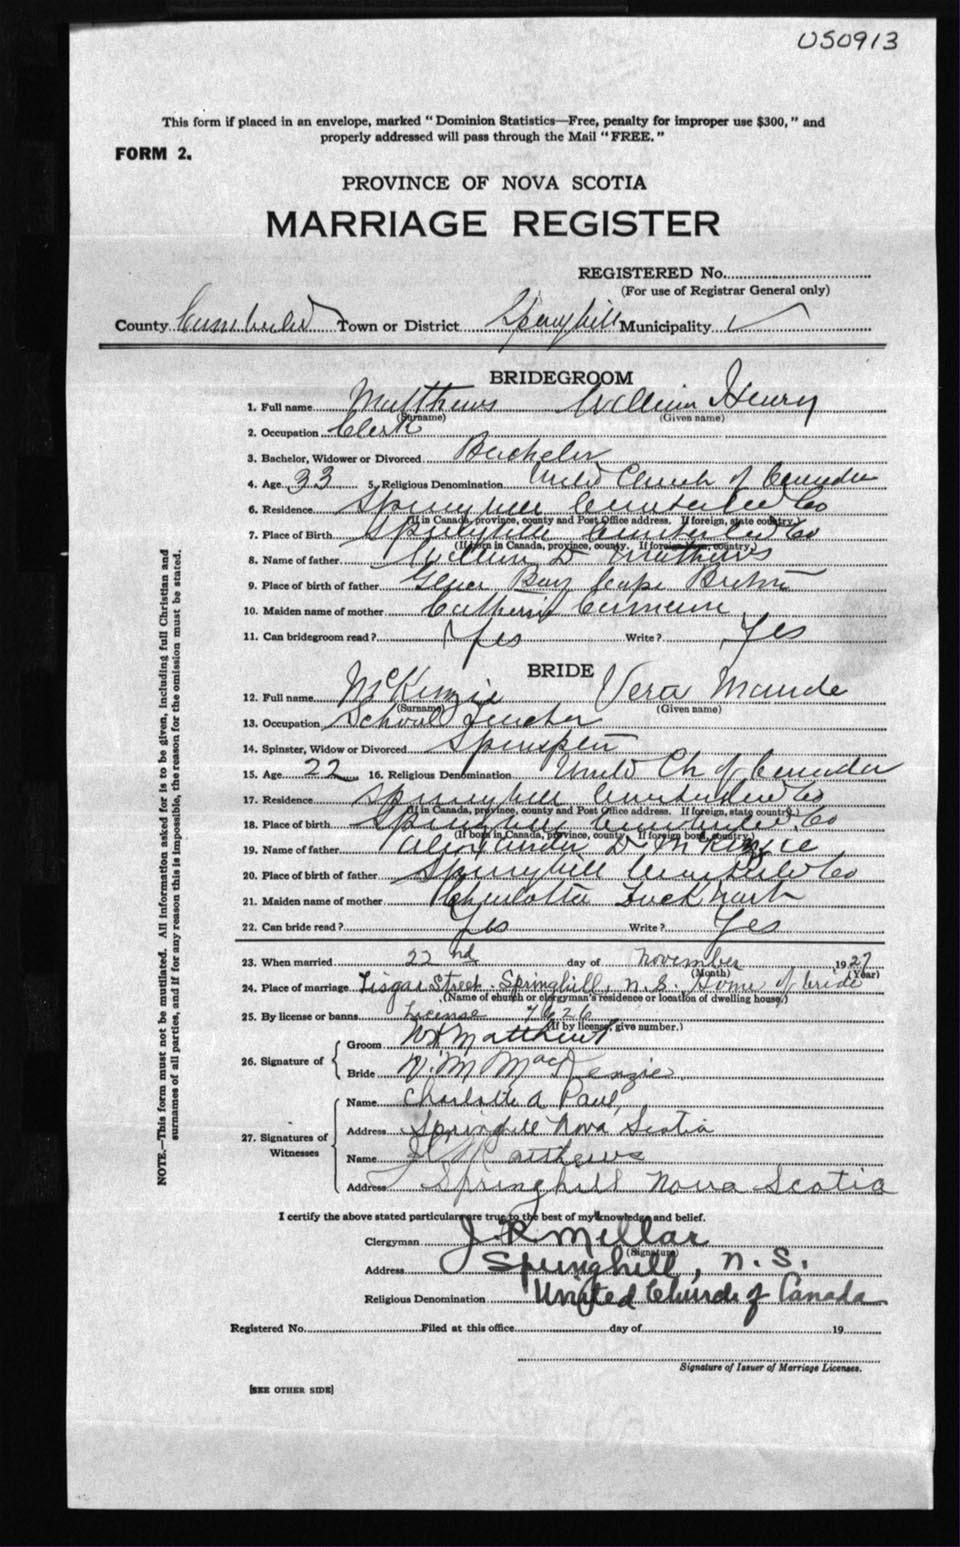 050913
This form if placed in an envelope, marked "Dominion Statistics—Free, penalty for improper use $300," and
properly addressed will pass through the Mail "FREE."
FORM 2.
PROVINCE OF NOVA SCOTIA
MARRIAGE REGISTER
REGISTERED No.
(For use of Registrar General only)
County Cumberland Town or District Springhill Municipality
BRIDEGROOM
1. Full name Matthews William Henry
(Surname) (Given name)
2. Occupation Clerk
3. Bachelor, Widower or Divorced Bachelor
4. Age 33 5. Religious Denomination United Church of Canada
6. Residence Springhill Cumberland Co
(If in Canada, province, county and Post Office address. If foreign, state country.)
7. Place of Birth Springhill Cumberland Co
(If born in Canada, province, county. If foreign born, country.)
8. Name of father William D Matthews
9. Place of birth of father Glace Bay Cape Breton
10. Maiden name of mother Catherine Cameron
11. Can bridegroom read? Yes Write? Yes
BRIDE
12. Full name McKinzie Vera Maude
(Surname) (Given name)
13. Occupation School Teacher
14. Spinster, Widow or Divorced Spinster
15. Age 22 16. Religious Denomination United Ch of Canada
17. Residence Springhill Cumberland Co
(If in Canada, province, county and Post Office address. If foreign, state country.)
18. Place of birth Springhill Cumberland Co
(If born in Canada, province, county. If foreign born, country.)
19. Name of father Alexander D McKinzie
20. Place of birth of father Springhill Cumberland Co
21. Maiden name of mother Charlotte Lockhart
22. Can bride read? Yes Write? Yes
23. When married 22nd day of November 1927
(Month) (Year)
24. Place of marriage Lisgar Street. Springhill, N.S. Home of bride
(Name of church or clergyman's residence or location of dwelling house.)
25. By license or banns License 7626
(If by license, give number.)
26. Signature of
Groom W H Matthews
Bride V. M MacKenzie
27. Signatures of Witnesses
Name Charlotte A Paul,
Address Springhill Nova Scotia
Name Matthews
Address Springhill Nova Scotia
I certify the above stated particulars are true to the best of my knowledge and belief.
Clergyman J. R. Millar
(Signature)
Address Springhill, N.S.
Religious Denomination United Church of Canada
Registered No. Filed at this office day of 19
Signature of Issuer of Marriage Licenses.
[SEE OTHER SIDE]
NOTE.—This form must not be mutilated. All information asked for is to be given, including full Christian and
surnames of all parties, and if for any reason this is impossible, the reason for the omission must be stated.